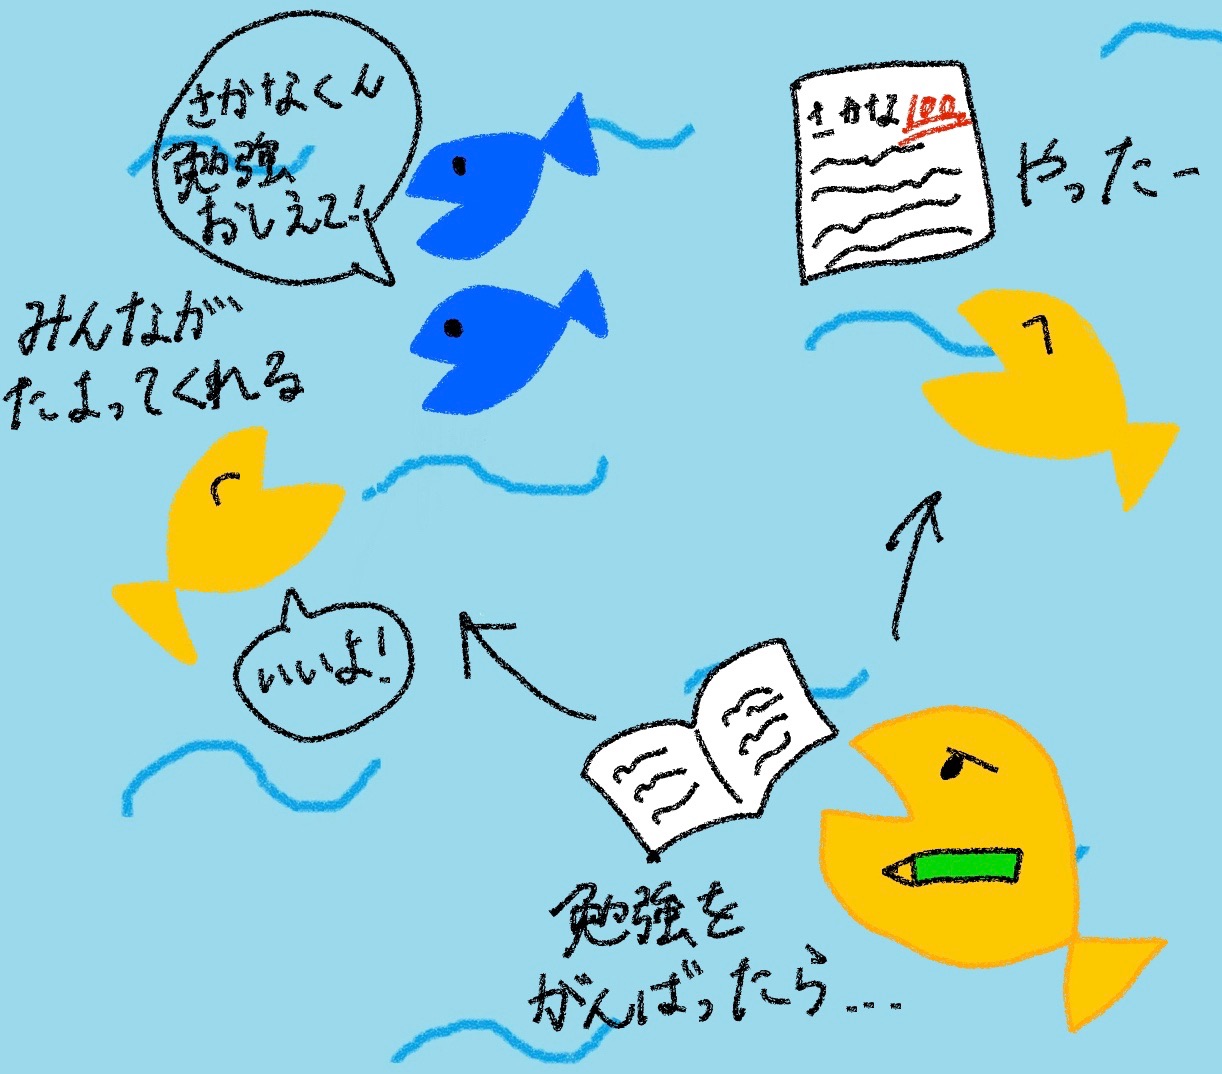 さかなくん
勉強
おしえて!
みんなが
たよってくれる
いいよ!
さかな 100
やったー
勉強を
がんばったら...